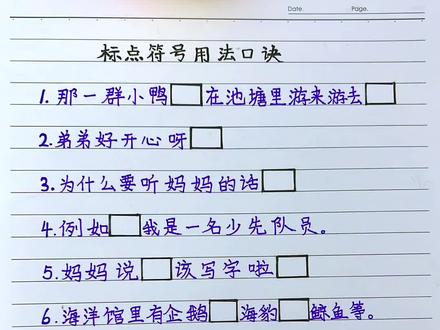 Date. Page.
标点符号用法口诀
1.那一群小鸭□在池塘里游来游去□
2.弟弟好开心呀□
3.为什么要听妈妈的话□
4.例如□我是一名少先队员。
5.妈妈说□该写字啦□
6.海洋馆里有企鹅□海豹□鲸鱼等。